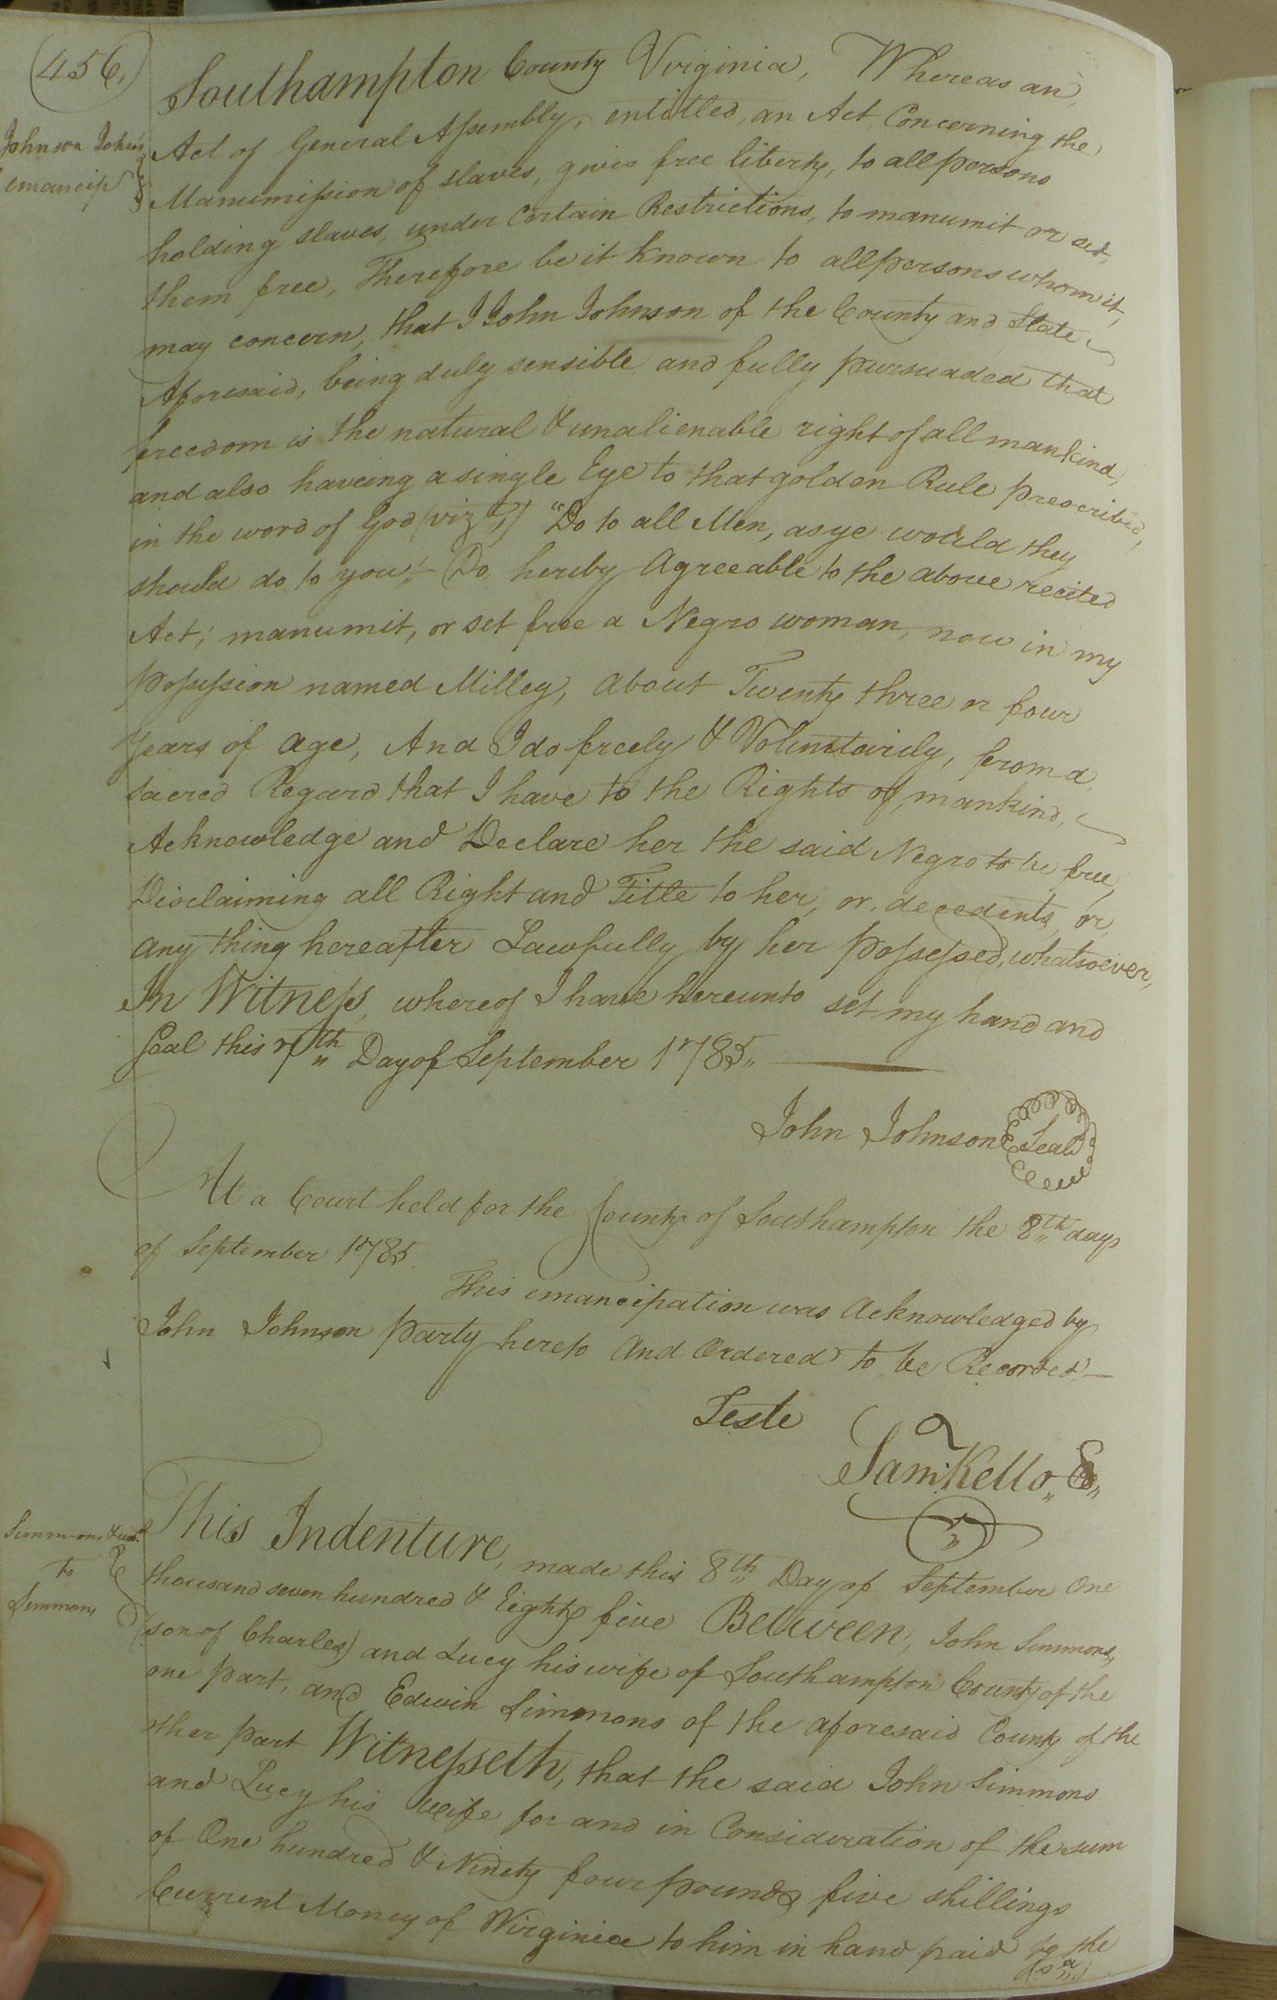 (456.)
Johnson John's
emancip
Southampton County Virginia, Whereas an
Act of General Assembly, entitled, an Act Concerning the
Manumission of slaves, gives free liberty, to all persons
holding slaves, under Certain Restrictions, to manumit or set,
them free, Therefore be it known to all persons whom it,
may concern, that I John Johnson of the County and State
Aforesaid, being duly sensible and fully pursuaded that
freedom is the natural & unalienable right of all mankind,
and also haveing a single Eye to that golden Rule prescribed,
in the word of God (vizt,) "Do to all Men, as ye would they
should do to you,- Do hereby Agreeable to the above recited
Act; manumit, or set free a Negro woman, now in my
possession named Milley, about Twenty three or four
years of age, And I do freely & Voluntarily, from a,
sacred Regard that I have to the Rights of mankind,
Acknowledge and Declare her the said Negro to be free,
Disclaiming all Right and Title to her, or, decedents, or,
any thing hereafter Lawfully by her possessed, whatsoever,
In Witness, whereof I have hereunto set my hand and
Seal this 7th Day of September 1785,
John Johnson Seal
At a Court held for the County of Southampton the 8th day
of September 1785
This emancipation was Acknowledged by
John Johnson party hereto And Ordered to be Recorded,-
Teste
Saml Kello,,
Simmons & ux.
to
Simmons
This Indenture, made this 8th Day of September One
thousand seven hundred & Eighty five Between, John Simmons,
(son of Charles) and Lucy his wife of Southampton County of the
one part, and Edwin Simmons of the aforesaid County of the
other part Witnesseth, that the said John Simmons
and Lucy his Wife for and in Consideration of the sum
of One hundred & Ninety four pounds five shillings
Current Money of Virginia to him in hand paid by the
(sd)